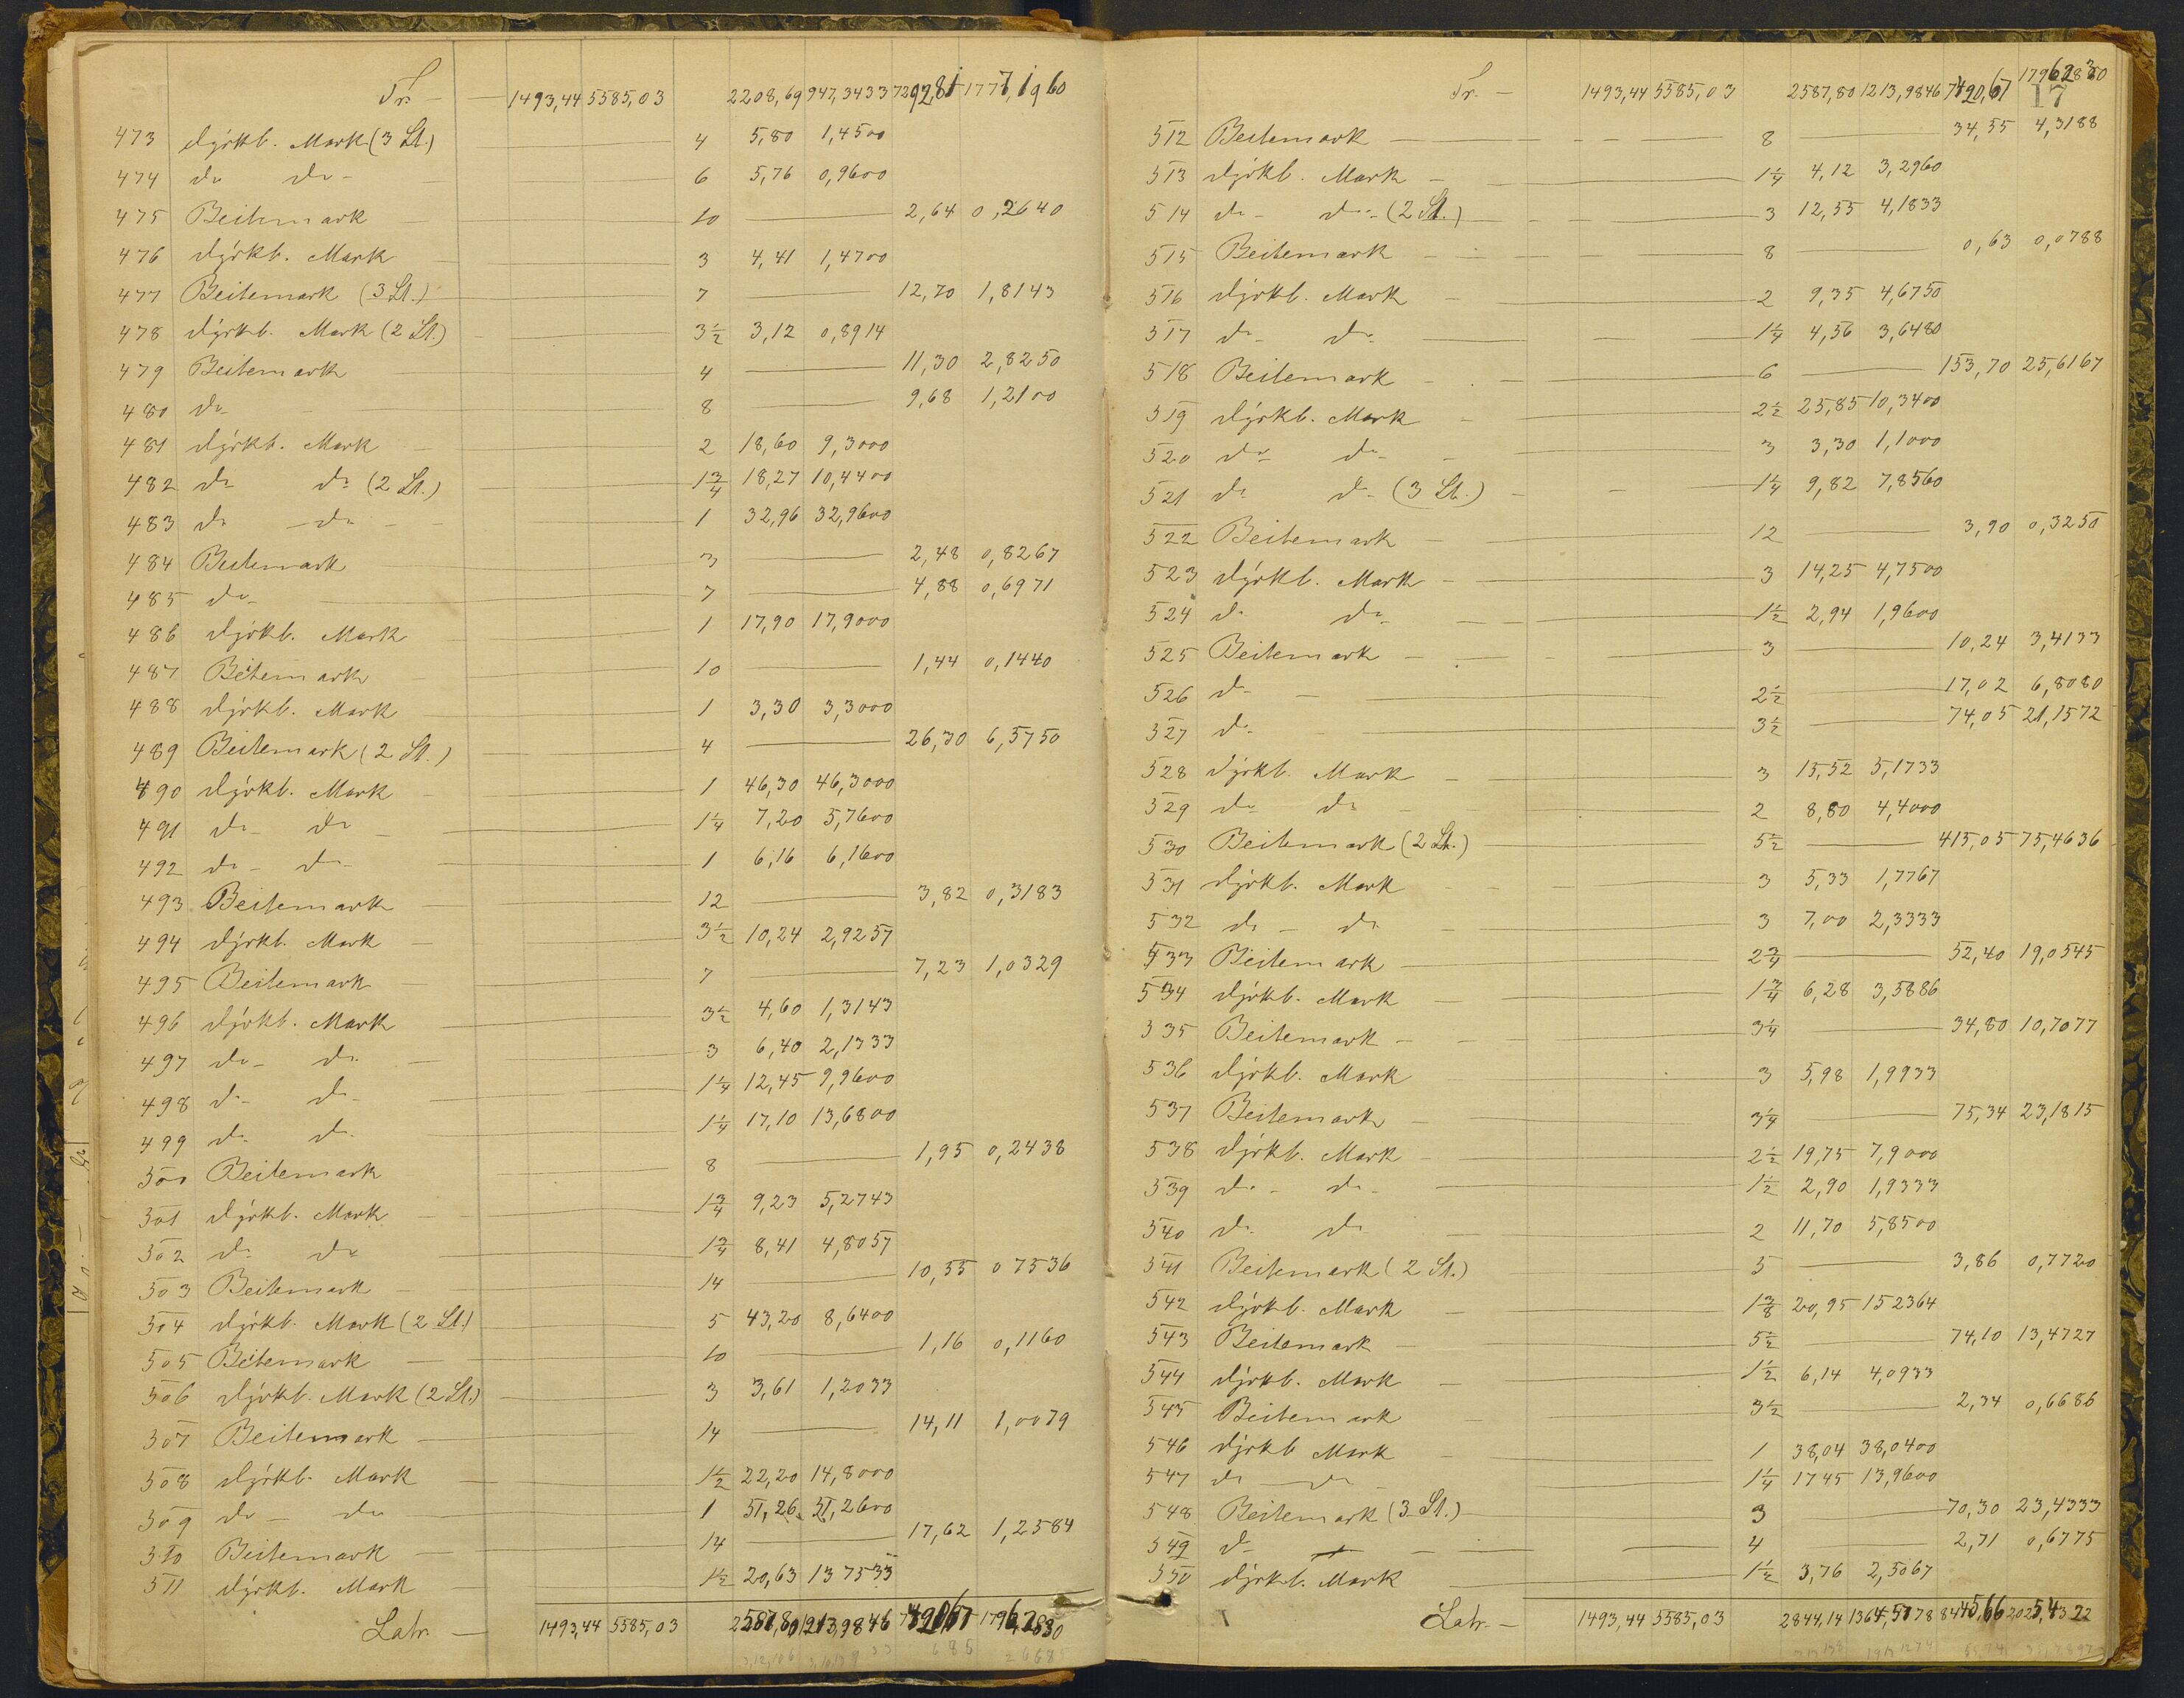 Tr. — 1493,44 5585,03 2208,69 947,3433
473 dyrkb. Mark (3 St.) 4 5,80 1,4500
474 do do 6 5,76 0,9600
475 Beitemark 10 2,64 0,2640
476 dyrkb. Mark 3 4,41 1,4700
477 Beitemark (3 St.) 7 12,70 1,8143
478 dyrkb. Mark (2 St.) 3½ 3,12 0,8914
479 Beitemark 4 11,30 2,8250
480 do 8 9,68 1,2100
481 dyrkb. Mark 2 18,60 9,3000
482 do do (2 St.) 1¾ 18,27 10,4400
483 do do 1 32,96 32,9600
484 Beitemark 3 2,48 0,8267
485 do 7 4,88 0,6971
486 dyrkb. Mark 1 17,90 17,9000
487 Beitemark 10 1,44 0,1440
488 dyrkb. Mark 1 3,30 3,3000
489 Beitemark (2 St.) 4 26,30 6,5750
490 dyrkb. Mark 1 46,30 46,3000
491 do do 1¼ 7,20 5,7600
492 do do 1 6,16 6,1600
493 Beitemark 12 3,82 0,3183
494 dyrkb. Mark 3½ 10,24 2,9257
495 Beitemark 7 7,23 1,0329
496 dyrkb. Mark 3½ 4,60 1,3143
497 do do 3 6,40 2,1333
498 do do 1¼ 12,45 9,9600
499 do do 1¼ 17,10 13,6800
500 Beitemark 8 1,95 0,2438
501 dyrkb. Mark 1¾ 9,23 5,2743
502 do do 1¾ 8,41 4,8057
503 Beitemark 14 10,55 0 7536
504 dyrkb. Mark (2 St.) 5 43,20 8,6400
505 Beitemark 10 1,16 0,1160
506 dyrkb. Mark (2 St.) 3 3,61 1,2033
507 Beitemark 14 14,11 1,0079
508 dyrkb. Mark 1½ 22,20 14,8000
509 do do 1 51,26 51,2600
510 Beitemark 14 17,62 1,2584
511 dyrkb. Mark 1½ 20,63 13 7533
Latr. — 1493,44 5585,03 2587,80 1213,9846
Tr. — 1493,44 5585,03 2587,80 1213,9846 7490,67
17
512 Beitemark 8 34,55 4,3188
513 dyrkb. Mark 1¼ 4,12 3,2960
514 do do (2 St.) 3 12,55 4,1833
515 Beitemark 8 0,63 0,0788
516 dyrkb. Mark 2 9,35 4,6750
517 do do 1¼ 4,56 3,6480
518 Beitemark 6 153,70 25,6167
519 dyrkb. Mark 2½ 25,85 10,3400
520 do do 3 3,30 1,1000
521 do do (3 St.) 1¼ 9,82 7,8560
522 Beitemark 12 3,90 0,3250
523 dyrkb. Mark 3 14,25 4,7500
524 do do 1½ 2,94 1,9600
525 Beitemark 3 10,24 3,4133
526 do 2½ 17,02 6,8080
527 do 3½ 74,05 21,1572
528 dyrkb. Mark 3 15,52 5,1733
529 do do 2 8,80 4,4000
530 Beitemark (2 St.) 5½ 415,05 75,4636
531 dyrkb. Mark 3 5,33 1,7767
532 do do 3 7,00 2,3333
533 Beitemark 2¾ 52,40 19,0545
534 dyrkb. Mark 1¾ 6,28 3,5886
535 Beitemark 3¼ 34,80 10,7077
536 dyrkb. Mark 3 5,98 1,9933
537 Beitemark 3¼ 75,34 23,1815
538 dyrkb. Mark 2½ 19,75 7,9000
539 do do 1½ 2,90 1,9333
540 do do 2 11,70 5,8500
541 Beitemark (2 St.) 5 3,86 0,7720
542 dyrkb. Mark 1⅜ 20,95 15 2364
543 Beitemark 5½ 74,10 13,4727
544 dyrkb. Mark 1½ 6,14 4,0933
545 Beitemark 3½ 2,34 0,6686
546 dyrkb Mark 1 38,04 38,0400
547 do do 1¼ 17 45 13,9600
548 Beitemark (3 St.) 3 70,30 23,4333
549 do 4 2,71 0,6775
550 dyrkb. Mark 1½ 3,76 2,5067
Latr. — 1493,44 5585,03 2844,14 1364,5778 8445,66 2025,4322